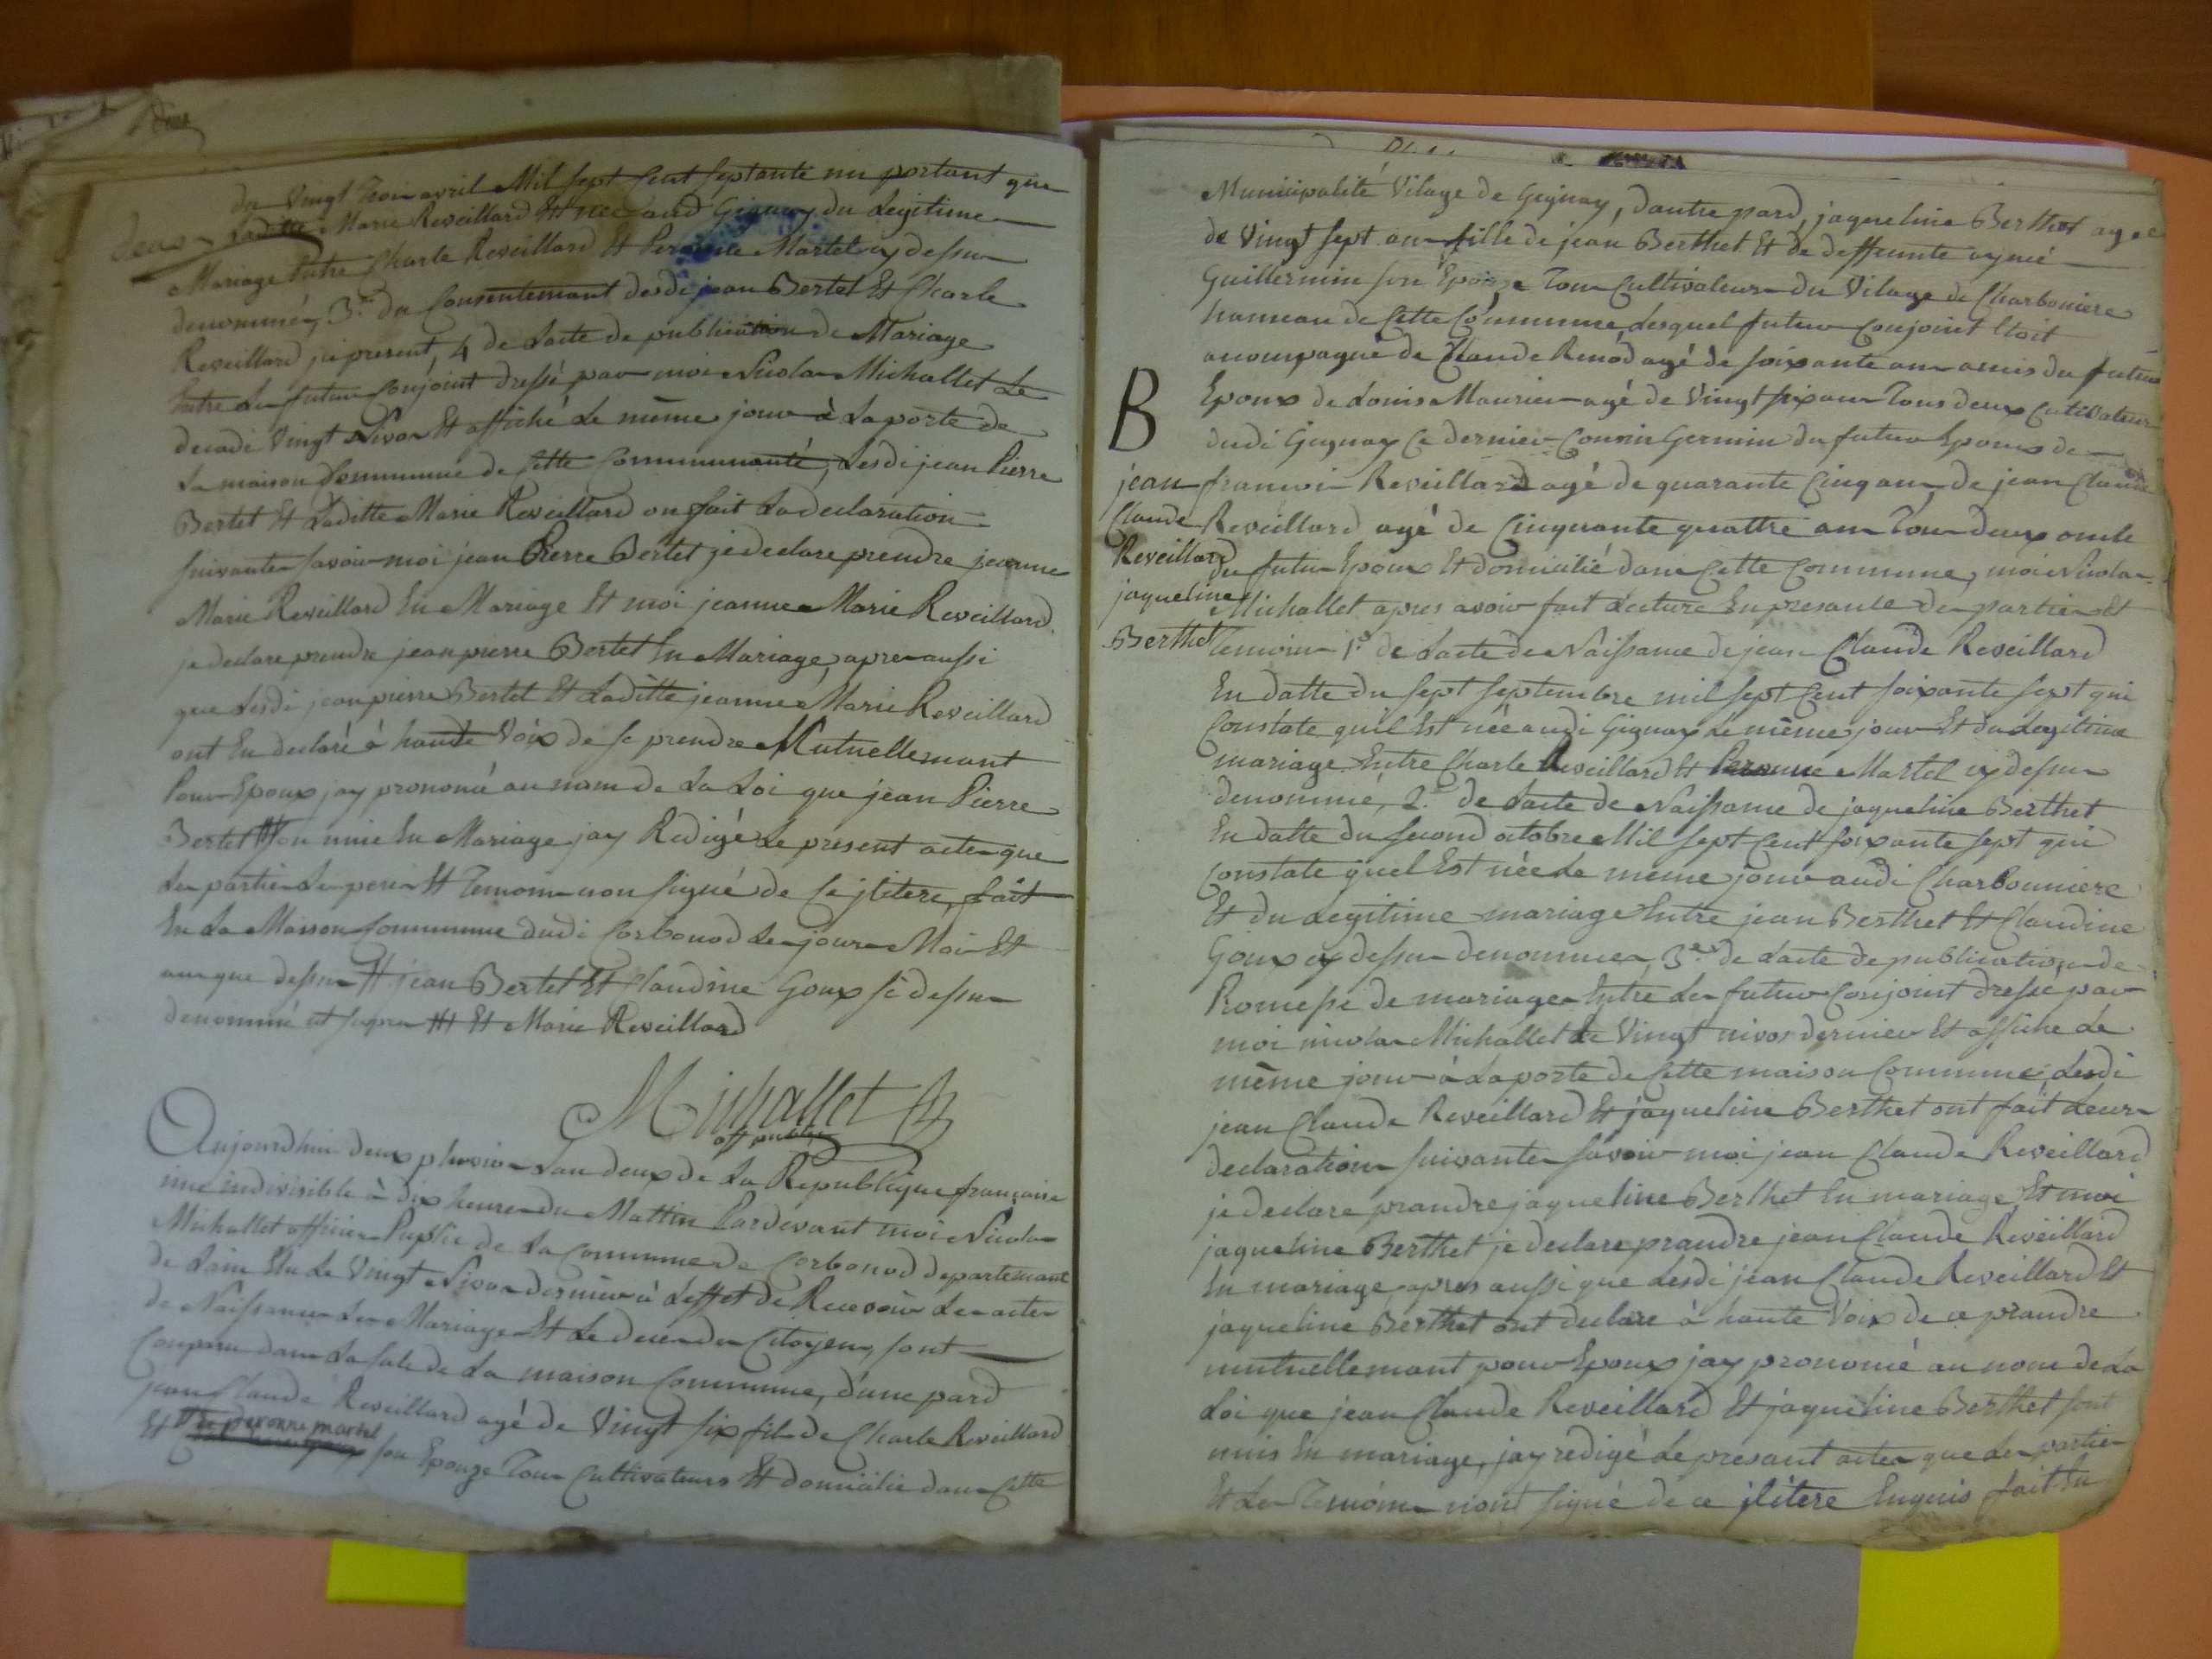 deux
du Vingt Troi avril Mil sept Cent septante un portant que
Laditte Marie Reveillard Et née audi Gignay du Legitime
Mariage Entre Charle Reveillard Et Peronne Martel cy dessu
denommés, 3.e du Consentemant desdi jean Bertet Et Charle
Reveillard ji present, 4 de Lacte de publication de Mariage
Entre Les futur Conjoint dressé par moi Nicola Michallet Le
decadi Vingt Nivos Et affiché Le même jour à La porte de
La maison Commune de Cette Communauté, Lesdi jean Pierre
Bertet Et Laditte Marie Reveillard on fait La declaration
suivante savoir moi jean Pierre Bertet je declare prendre jeanne
Marie Reveillard En Mariage Et moi jeanne Marie Reveillard
je declare prendre jean pierre Bertet En Mariage, apres aussi
que Lesdi jean pierre Bertet Et Laditte jeanne Marie Reveillard
ont Eu declaré à haute Voix de se prendre Mutuellemant
Pour Epoux jay prononcé au nom de La Loi que jean Pierre
Bertet # son unie En Mariage jay Redigé Le present acte que
Les partie Les peres Et Temoins non signé de Ce jlitere, fait
En La Maison Commune dudi Corbonod Les jour Moi Et
an que dessu # jean Bertet Et Claudine Goux si dessu
denommé ut supra ## Et Marie Reveillard
Michallet
off public
Aujourdhui deux pluvios Lan deux de La Republique française
une indivisible à dix heure du Mattin Pardevant moi Nicola
Michallet officier Puplic de La Commune de Corbonod departemant
de Lain Elu Le Vingt Nivos dernier à Leffet de Recevoir Les acte
de Naissance Les Mariage Et Le decè des Citoyens, sont
Comparu dans La sale de La maison Commune, dune pard
jean Claude Reveillard agé de Vingt six fil de Charle Reveillard
Et de peronne martel son Epouze Tous Cultivateurs Et domicilié dans Cette
Municipalité Vilage de Gignay, dautre pard, jaqueline Berthet agée
de Vingt sept an fille de jean Berthet Et de deffunte aymé
Guillermin son Epouze Tous Cultivateur du Vilage de Charboniere
hameau de Cette Commune, Lesquel futur Conjoint Etoit
acompagné de Claude Renod agé de soixante an amis du futur
Epoux de Louis Maurier agé de Vingt six an Tous deux Cutivateur
dudi Gignay Ce dernier Cousin Germin du futur Epoux de
B
jean
Claude
Reveillard
jaqueline
Berthet
francoi Reveillard agé de quarante Cinq an de jean Claude
Reveillard agé de Cinquante quattre an Tous deux oncle
du futur Epoux Et domicilié dans Cette Commune, moi Nicola
Michallet apres avoir fait Lecture En presance des partie Et
Temoins 1.o de Lacte de Naissance de jean Claude Reveillard
En datte du sept septembre mil sept Cent soixante sept qui
Constate quil Est née audi Gignay Le même jour Et du Legitime
mariage Entre Charle Reveillard Et Peronne Martel cy dessu
denommé, 2.e de Lacte de Naissance de jaqueline Berthet
En datte du second octobre Mil sept Cent soixante sept qui
Constate quel Est née Le meme jour audi Charbonniere
Et du Legitime mariage Entre jean Berthet Et Claudine
Goux cy dessu denommer 3.e de Lacte de publication de
Promesse de mariage Entre Les futur Conjoint dressé par
moi nicola Michallet Le Vingt nivos dernier Et affiche Le
même jour à La porte de Cette maison Commune, Lesdi
jean Claude Reveillard Et jaqueline Berthet ont fait Leur
declaration suivante savoir moi jean Claude Reveillard
je declare prandre jaqueline Berthet En mariage, Et moi
jaqueline Berthet je declare prandre jean Claude Reveillard
En mariage apres aussi que Lesdi jean Claude Reveillard Et
jaqueline Berthet ont declare à haute Voix de ce prandre
mutuellemant pour Epoux jay prononcé au nom de La
Loi que jean Claude Reveillard Et jaqueline Berthet sont
unis En mariage, jay redigé Le presant acte que Les partie
Et Les Temoins nont signé de ce jlitere Enquis fait En